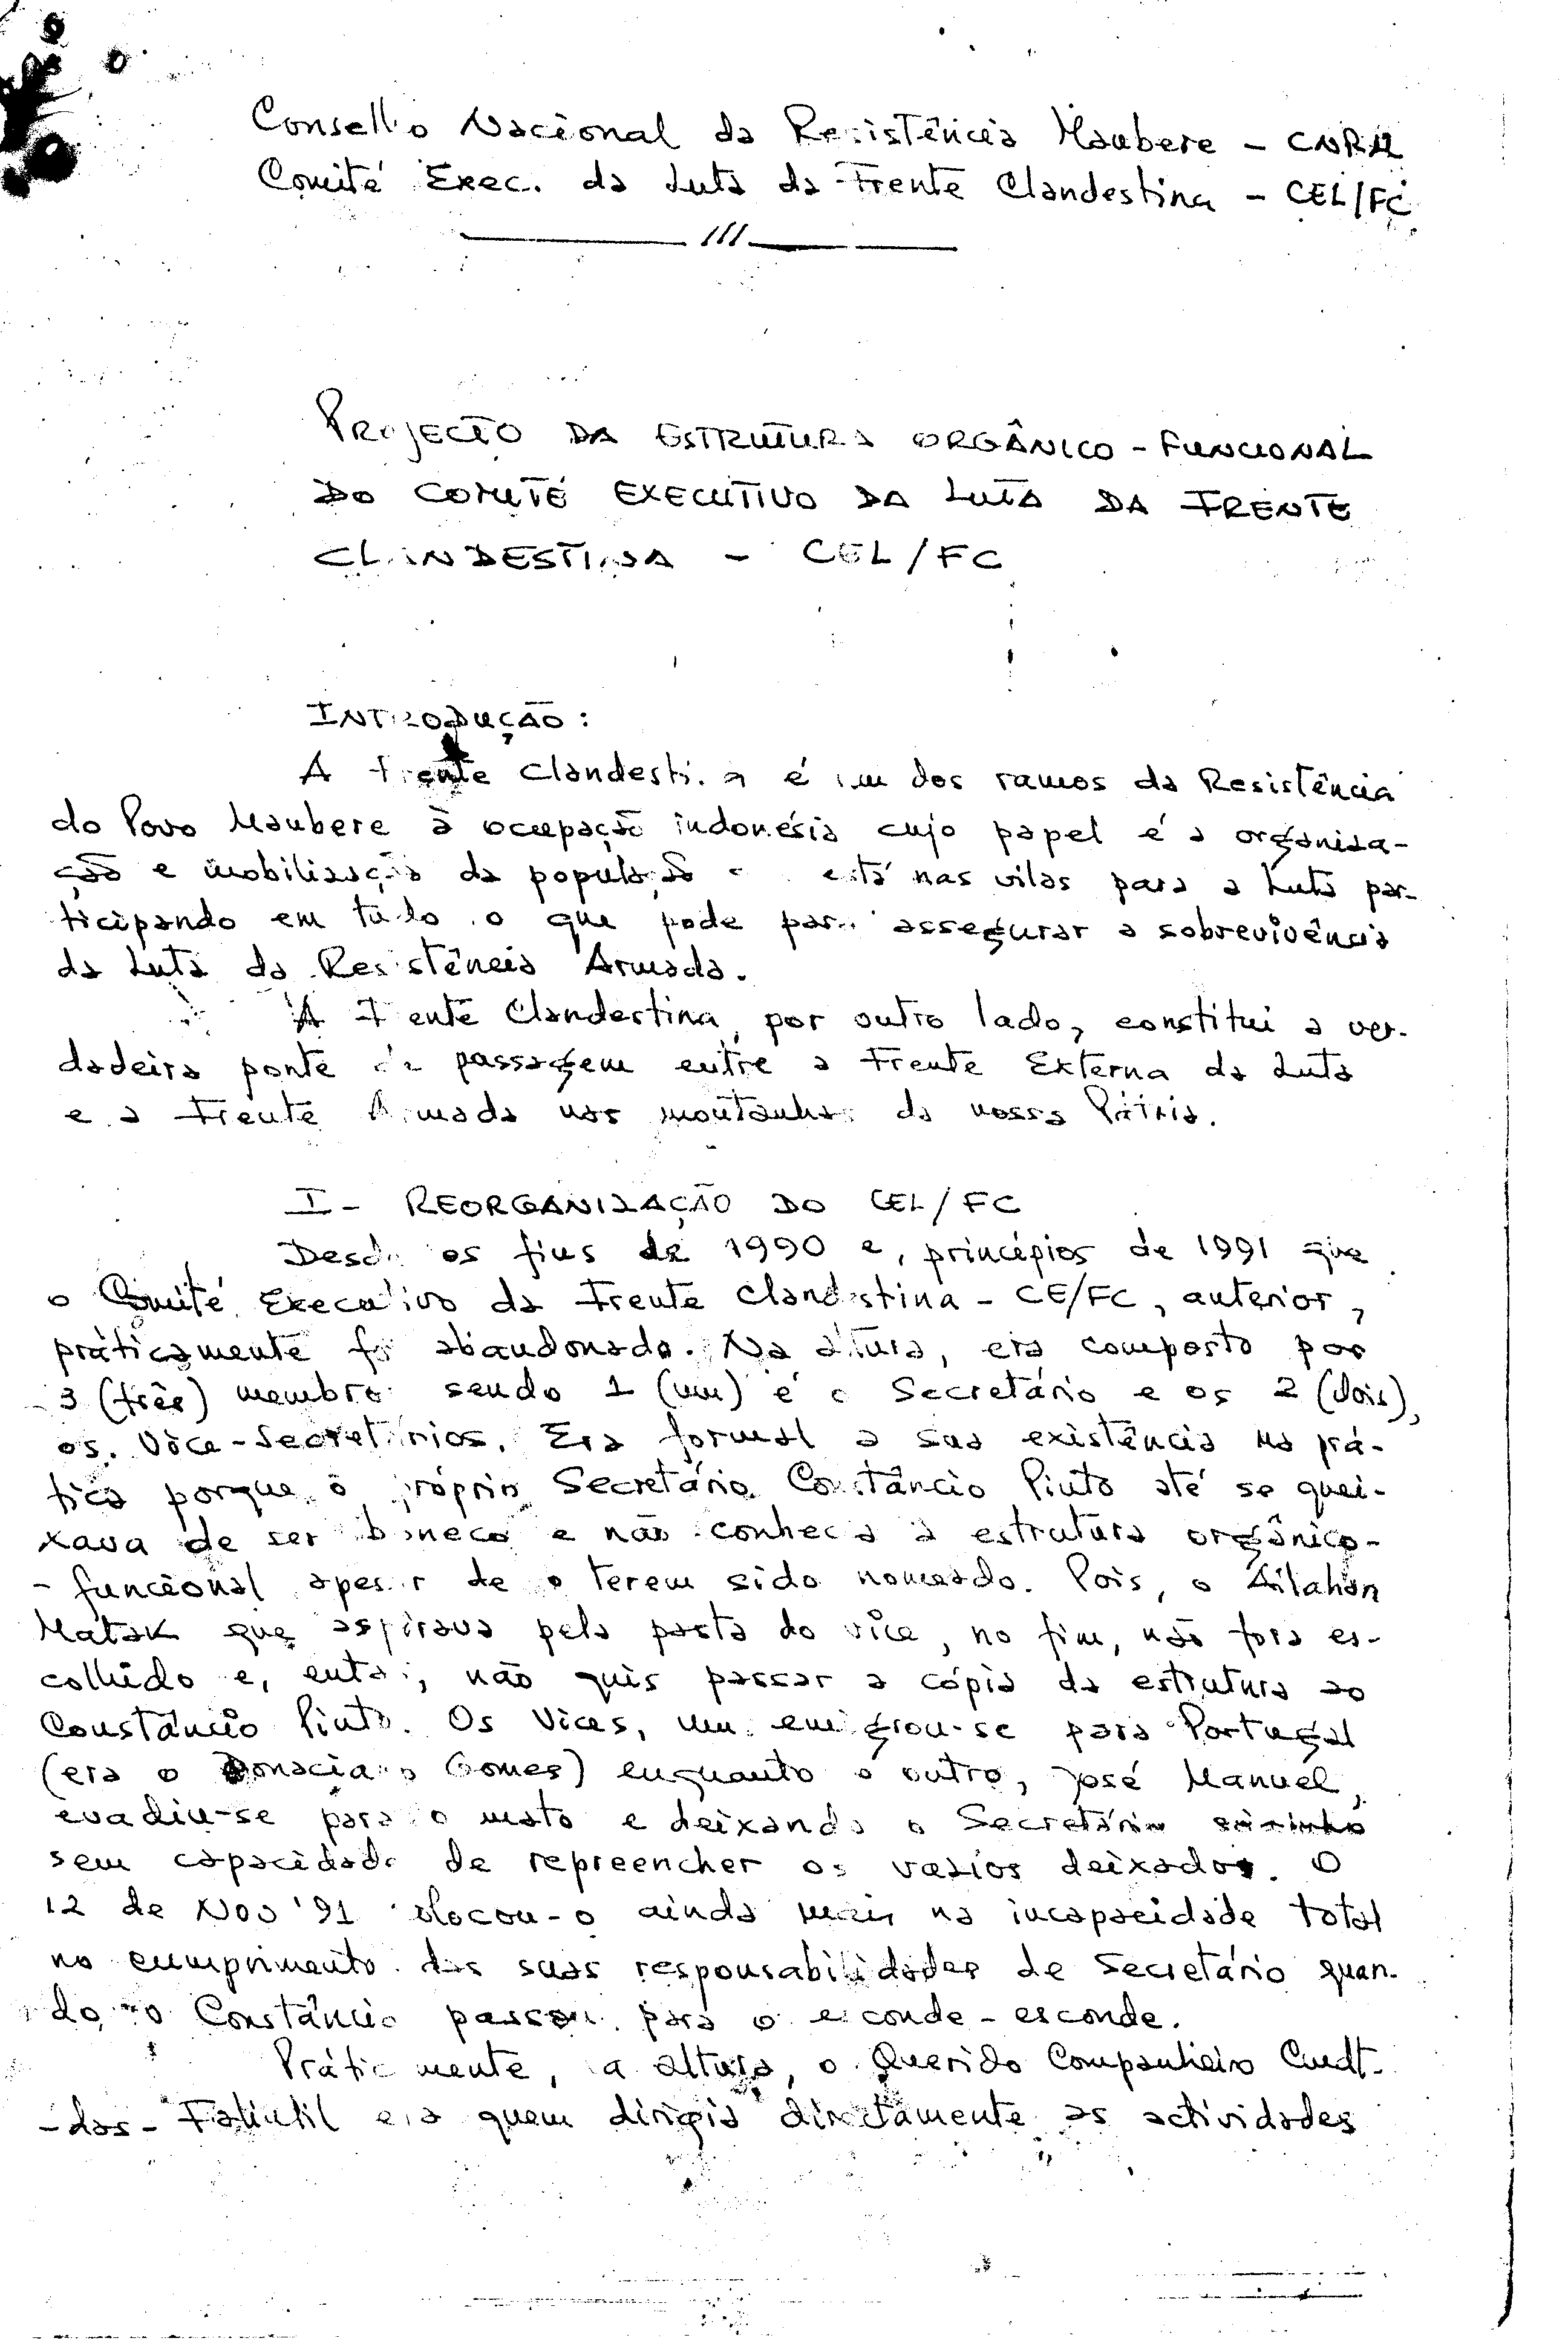 Conselho Nacional da Resistência Maubere - CNRM
Comité Exec. da Luta da Frente Clandestina - CEL/FC
///
PROJECTO DA ESTRUTURA ORGÂNICO-FUNCIONAL
DO COMITÉ EXECUTIVO DA LUTA DA FRENTE
CLANDESTINA - CEL/FC
INTRODUÇÃO:
A Frente Clandestina é um dos ramos da Resistência
do Povo Maubere à ocupação indonésia cujo papel é a organiza-
ção e mobilização da população está nas vilas para a Luta par-
ticipando em tudo o que pode para assegurar a sobrevivência
da Luta da Resistência Armada.
A Frente Clandestina, por outro lado, constitui a ver-
dadeira ponte de passagem entre a Frente Externa da Luta
e a Frente Armada nas montanhas da nossa Pátria.
I - REORGANIZAÇÃO DO CEL/FC
Desde os fins de 1990 e, princípios de 1991 que
o Comité Executivo da Frente Clandestina - CE/FC, anterior,
práticamente foi abandonado. Na altura, era composto por
3 (três) membros sendo 1 (um) é o Secretário e os 2 (dois),
os Vice-Secretários. Era formal a sua existência na prá-
tica porque o próprio Secretário Constâncio Pinto até se quei-
xava de ser boneco e não conhecia a estrutura orgânico-
-funcional apesar de o terem sido nomeado. Pois, o Ailahan
Matak que aspirava pela pasta do vice, no fim, não fora es-
colhido e, então, não quis passar a cópia da estrutura ao
Constâncio Pinto. Os Vices, um emigrou-se para Portugal
(era o Donaciano Gomes) enquanto o outro, José Manuel,
evadiu-se para o mato e deixando o Secretário sozinho
sem capacidade de repreencher os vazios deixados. O
12 de Nov '91 colocou-o ainda mais na incapacidade total
no cumprimento das suas responsabilidades de Secretário quan-
do o Constâncio passou para o esconde-esconde.
Práticamente, na altura, o Querido Companheiro Cmdt-
-das-Falintil era quem dirigia directamente as actividades